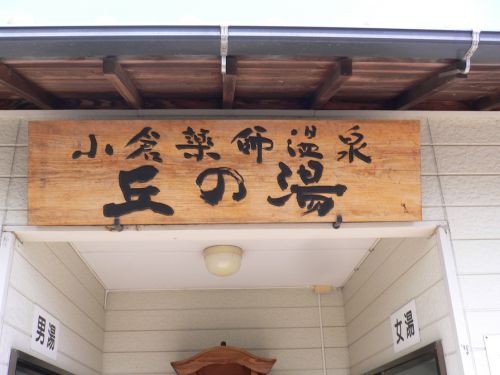 小倉薬師温泉
丘の湯
男湯
女湯